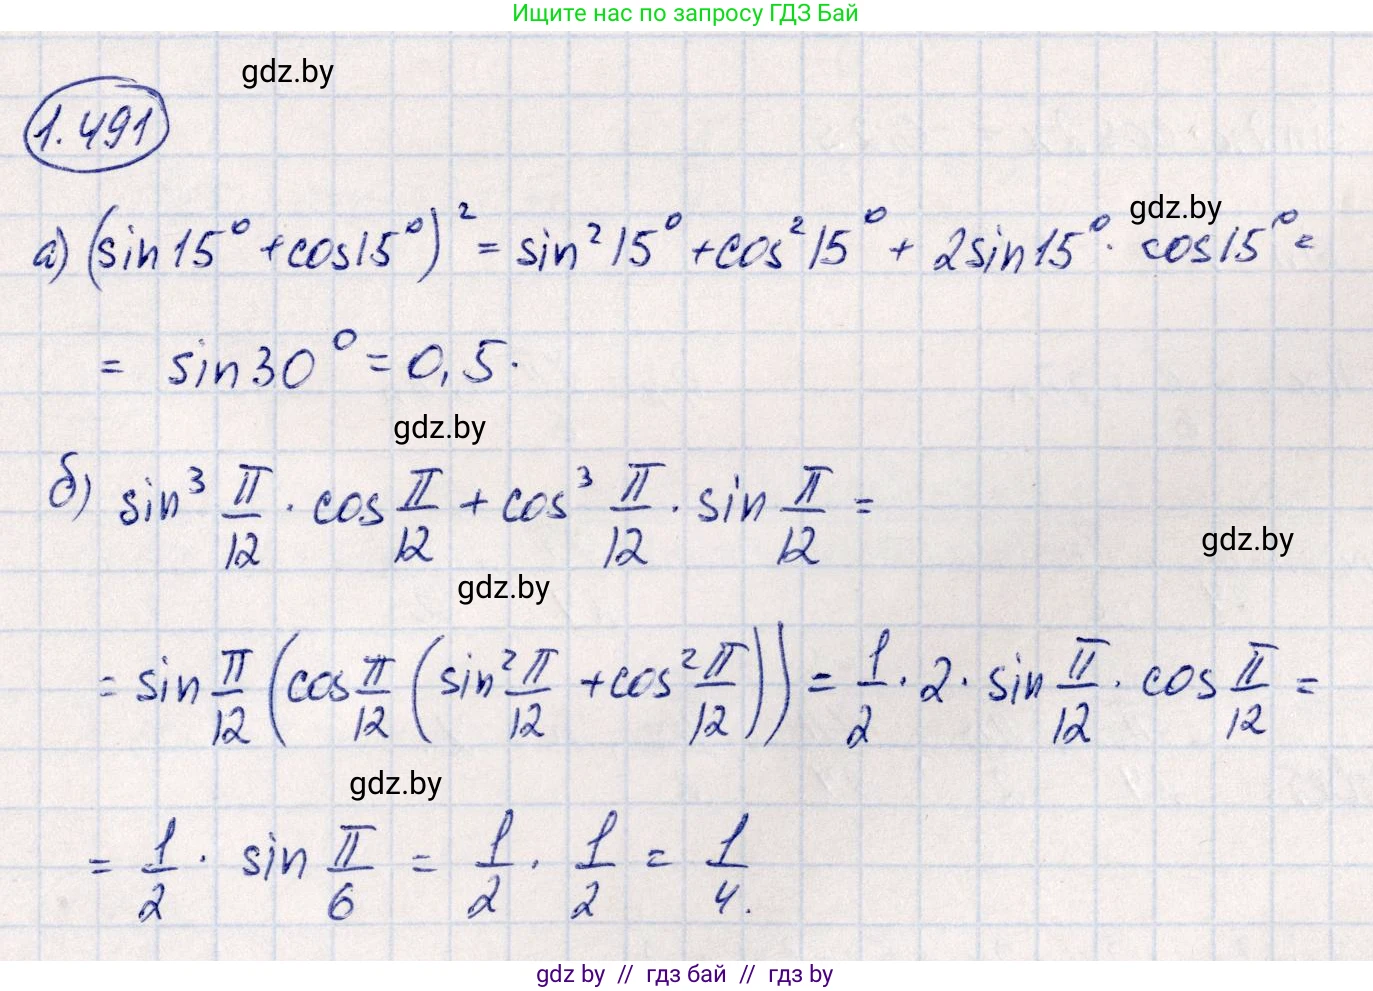 Ищите нас по запросу ГДЗ Бай
gdz.by
1.491
gdz.by
а) (sin15° + cos15°)² = sin²15° + cos²15° + 2sin15° · cos15° =
= sin30° = 0,5.
gdz.by
б) sin³ π/12 · cos π/12 + cos³ π/12 · sin π/12 =
gdz.by
gdz.by
= sin π/12 (cos π/12 (sin² π/12 + cos² π/12)) = 1/2 · 2 · sin π/12 · cos π/12 =
gdz.by
= 1/2 · sin π/6 = 1/2 · 1/2 = 1/4.
gdz by // гдз бай // гдз by